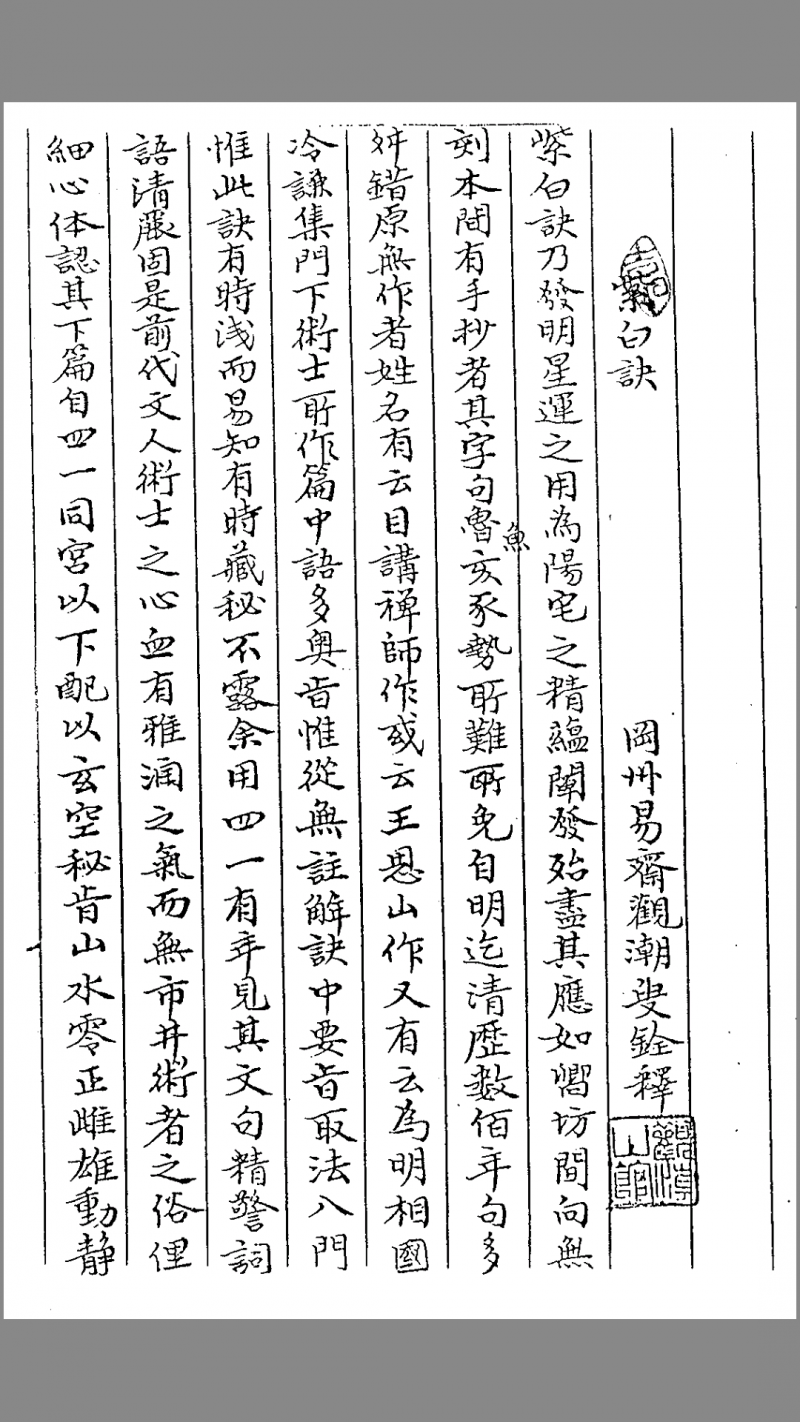 紫白訣
岡州易齋觀潮叟銓釋
紫白訣乃發明星運之用為陽宅之精蘊闡發殆盡其應如嚮坊間向無
刻本間有手抄者其字句魯魚亥豕勢所難免自明迄清歷数佰年句多
舛錯原無作者姓名有云目講禅師作或云王思山作又有云為明相國
冷謙集門下術士所作篇中語多奧旨惟從無註解訣中要旨取法八門
惟此訣有時浅而易知有時藏秘不露余用四一有年見其文句精警詞
語清麗固是前代文人術士之心血有雅潤之氣而無市井術者之俗俚
細心体認其下篇自四一同宮以下配以玄空秘旨山水零正雌雄動静